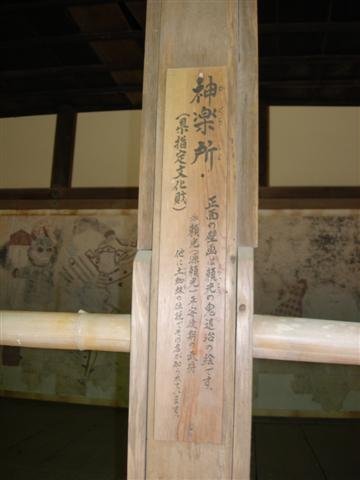 神楽所・
(県指定文化財)
正面の壁画は頼光の鬼退治の絵です。
※頼光(源頼光)平安後期の武将
他に土蜘蛛の伝説でその名が知られています。